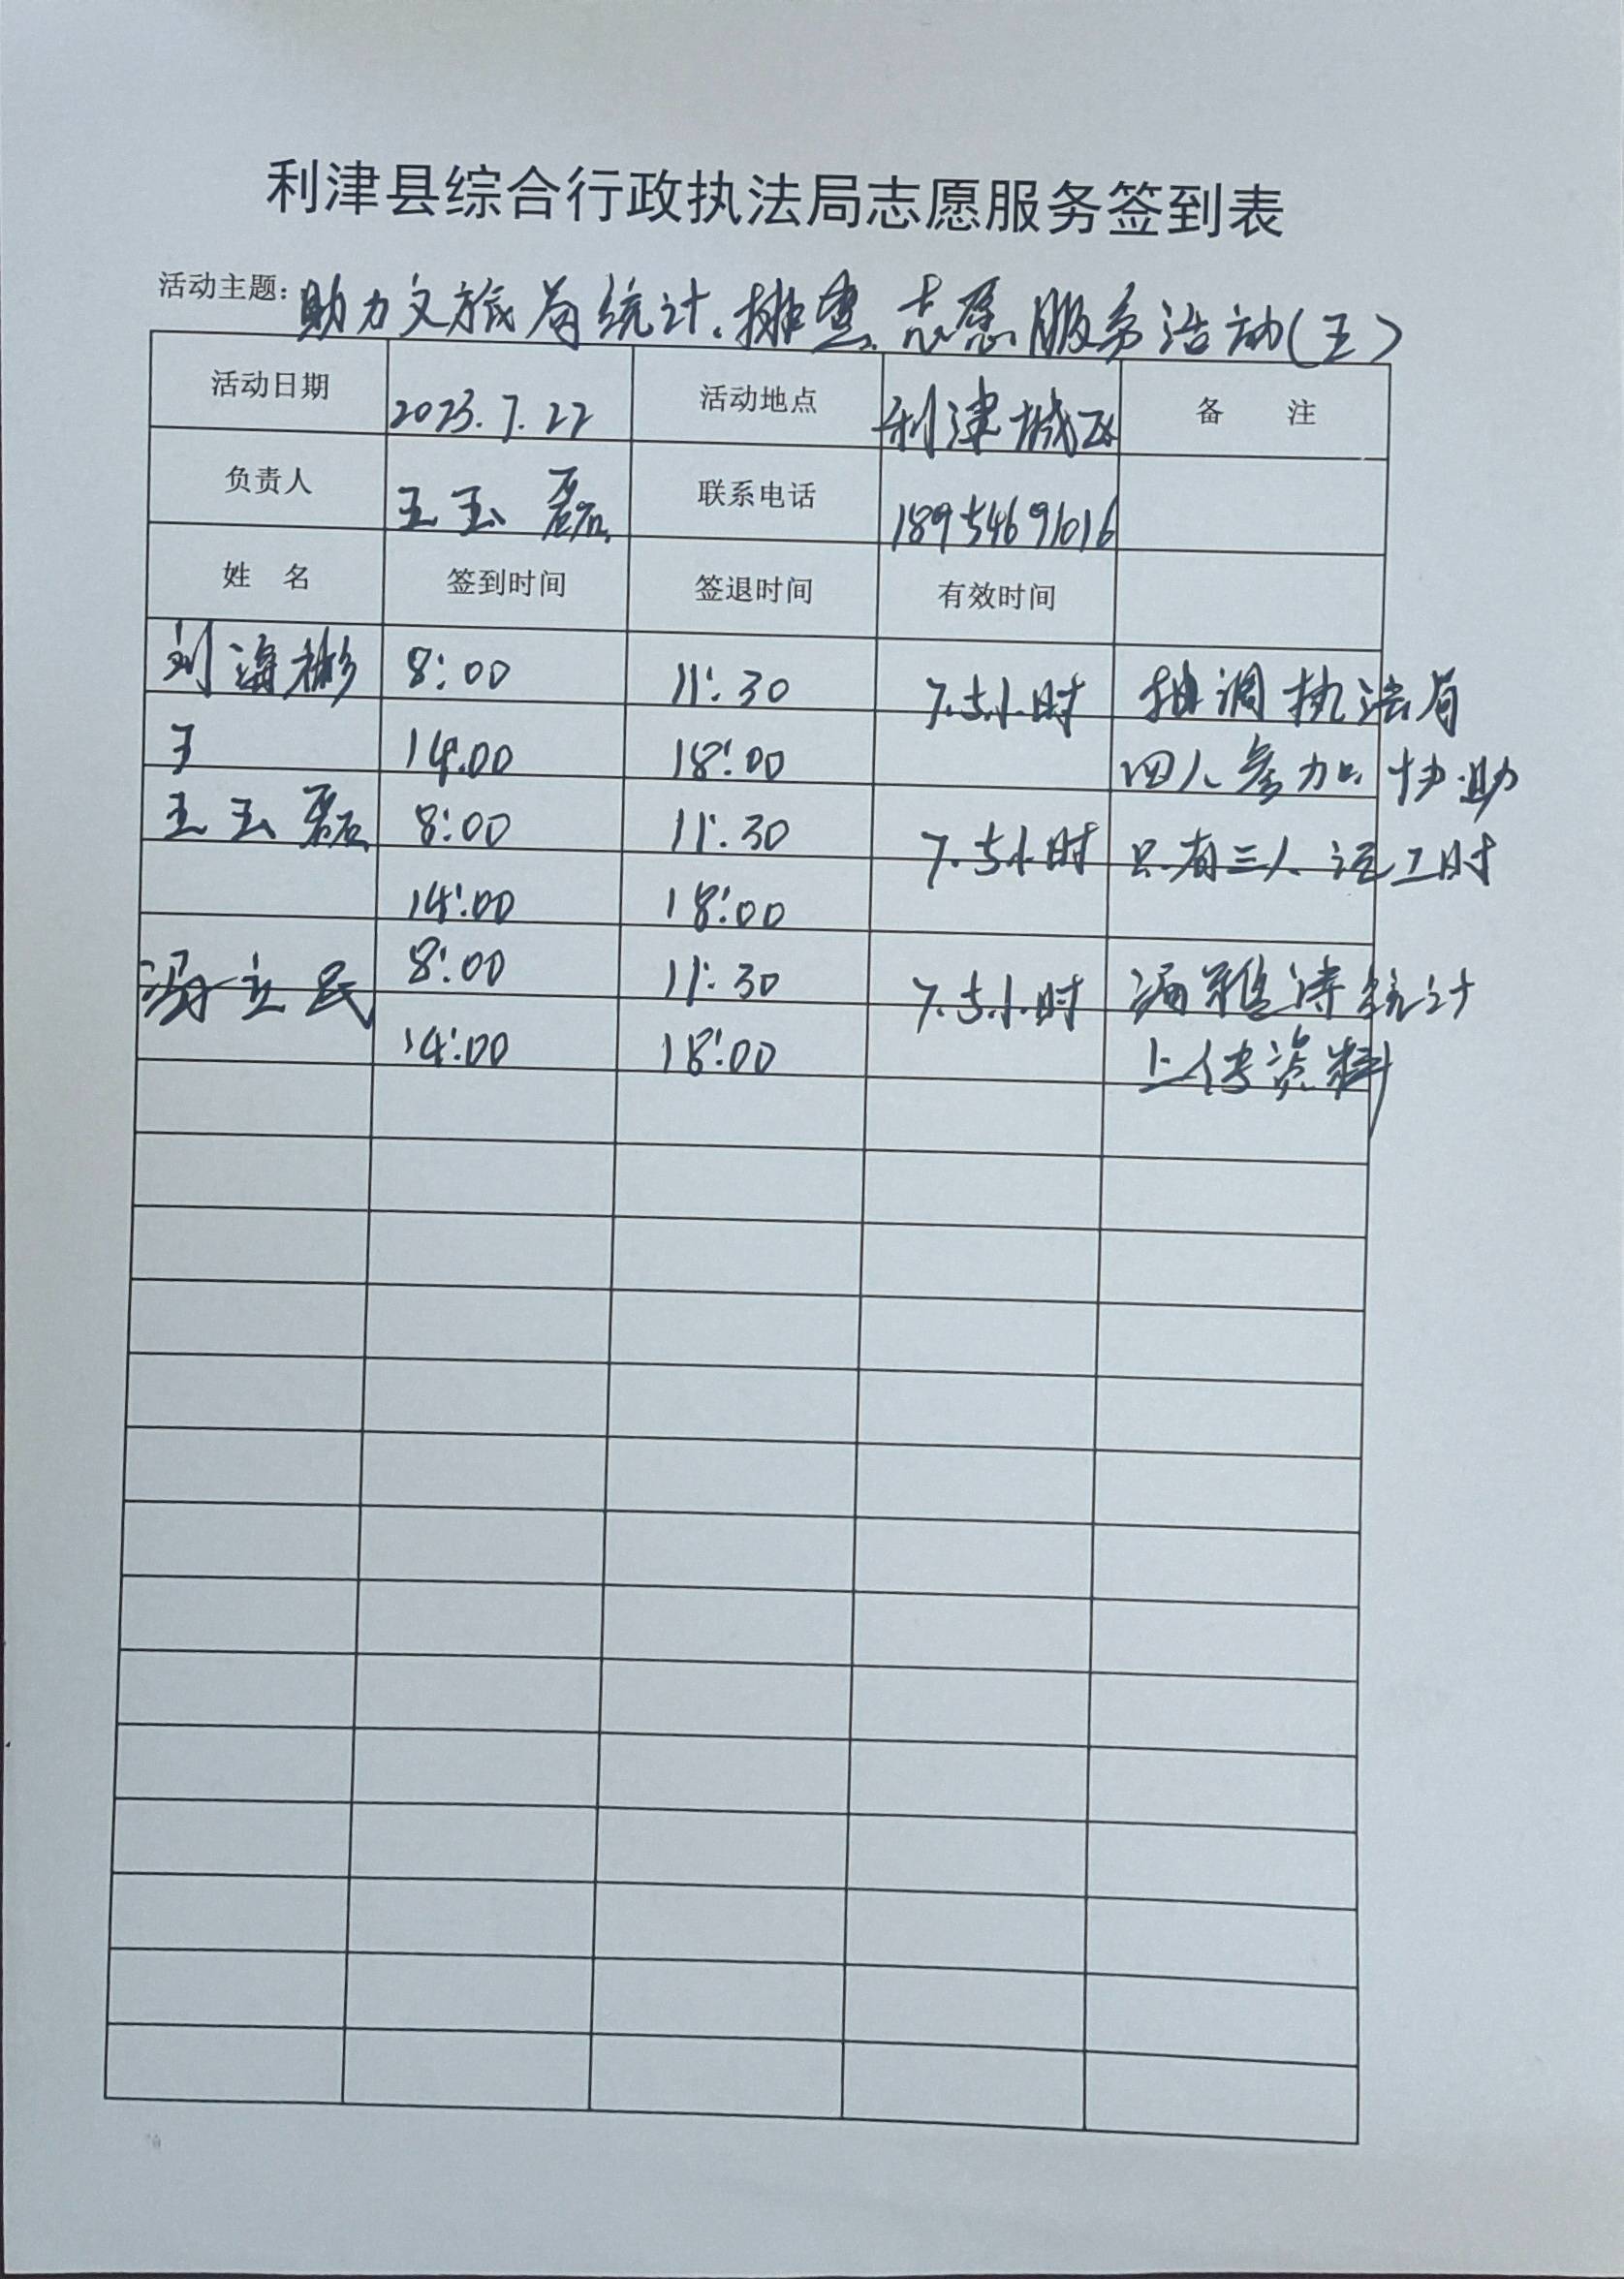 利津县综合行政执法局志愿服务签到表
活动主题：助力文旅局统计、排查志愿服务活动（五）
活动日期 2023.7.22 活动地点 利津城区 备 注
负责人 王玉磊 联系电话 18954691016
姓 名 签到时间 签退时间 有效时间
刘海彬 8:00 11:30 7.5小时 抽调执法局
王 14:00 18:00 四人参加 协助
王玉磊 8:00 11:30 7.5小时 只有三人 记工时
14:00 18:00
冯立民 8:00 11:30 7.5小时 雅诗统计
14:00 18:00 上传资料